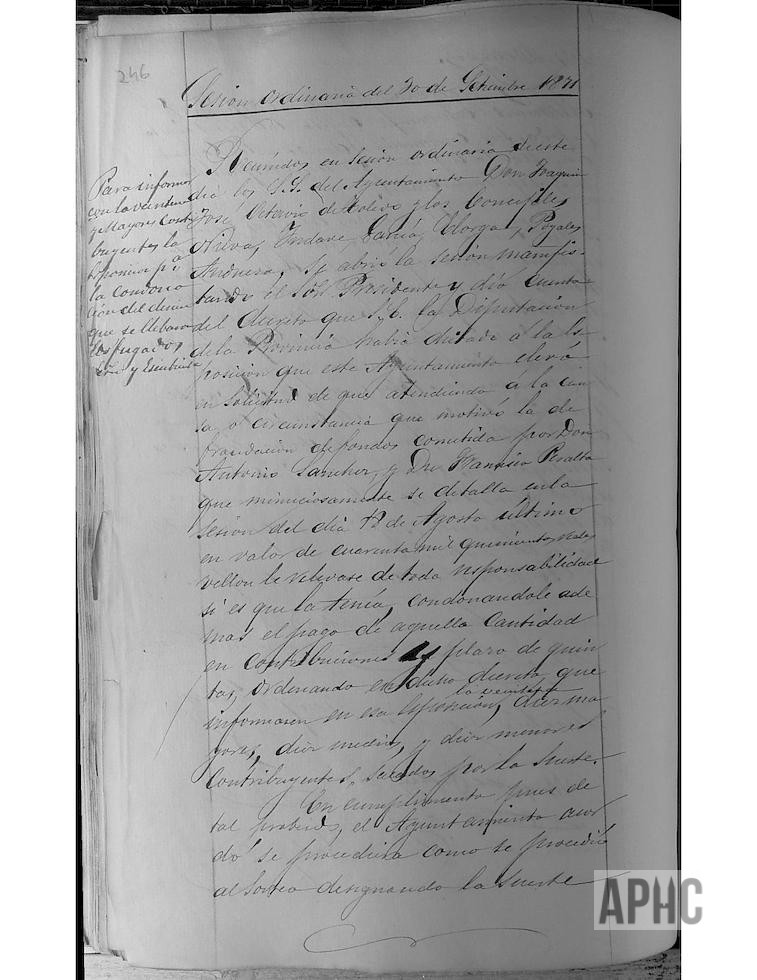 246
Sesion ordinaria del 30 de Setiembre 1871
Para informar
con la veintena
y Mayores Cont
buyentes la
esposicion pª
la condona
cion del dinero
que se llebaron
los fugados
Srio y Escribiente
Reunidos en sesion ordinaria de este
dia los S.S. del Ayuntamiento Don Joaquin
Jose Octavio de Toledo y los Concejales
Nieva, Yndave, Garcia, Elorga, Pozales
Andueza, se abrió la sesion manifes-
tando el Señor Presidente y dió cuenta
del decreto que S.E. la Diputacion
de la Provincia habia dictado a la es
posicion que este Ayuntamiento elevó
en solicitud de que atendiendo a la cau
sa, o circunstancia que motivó la de
fraudacion de fondos cometida por Don
Antonio Sanchez, y Dn Francisco Peralta
que minuciosamente se detalla en la
sesion del dia 12 de Agosto último
en valor de cuarenta mil quinientos reales
vellon le relevase de toda responsabilidad
si es que la tenía, condonandole ade
mas el pago de aquella Cantidad
en Contribuciones y plazo de quin
tas, ordenando en dicho decreto que
informasen en esa esposicion, la veintena diez ma
yores, diez medios, y diez menores
Contribuyentes, sacados por la Suerte.
En cumplimiento pues de
tal probeido, el Ayuntamiento acor
dó se procediera como se procedió
al Sorteo designando la Suerte
APHC